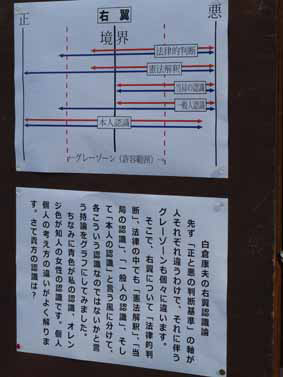 正
右翼
悪
境界
法律的判断
憲法解釈
当局の認識
一般人認識
本人認識
グレーゾーン（許容範囲）
白倉康夫の右翼認識論
先ず「正と悪の判断基準」の軸が
人それぞれ違うわけで、それに伴う
グレーゾーンも個々に違います。
そこで、右翼について「法律的判
断」、法律の中でも「憲法解釈」、「当
局の認識」、「一般人の認識」、そし
て「本人の認識」と言う風に分けて、
各こういう認識なのではないかと言
う持論をグラフにしてみました。
ちなみに青色が私の認識、オレン
ジ色が知人の女性の認識です。個人
個人の考え方の違いがよく解りま
す。さて貴方の認識は？